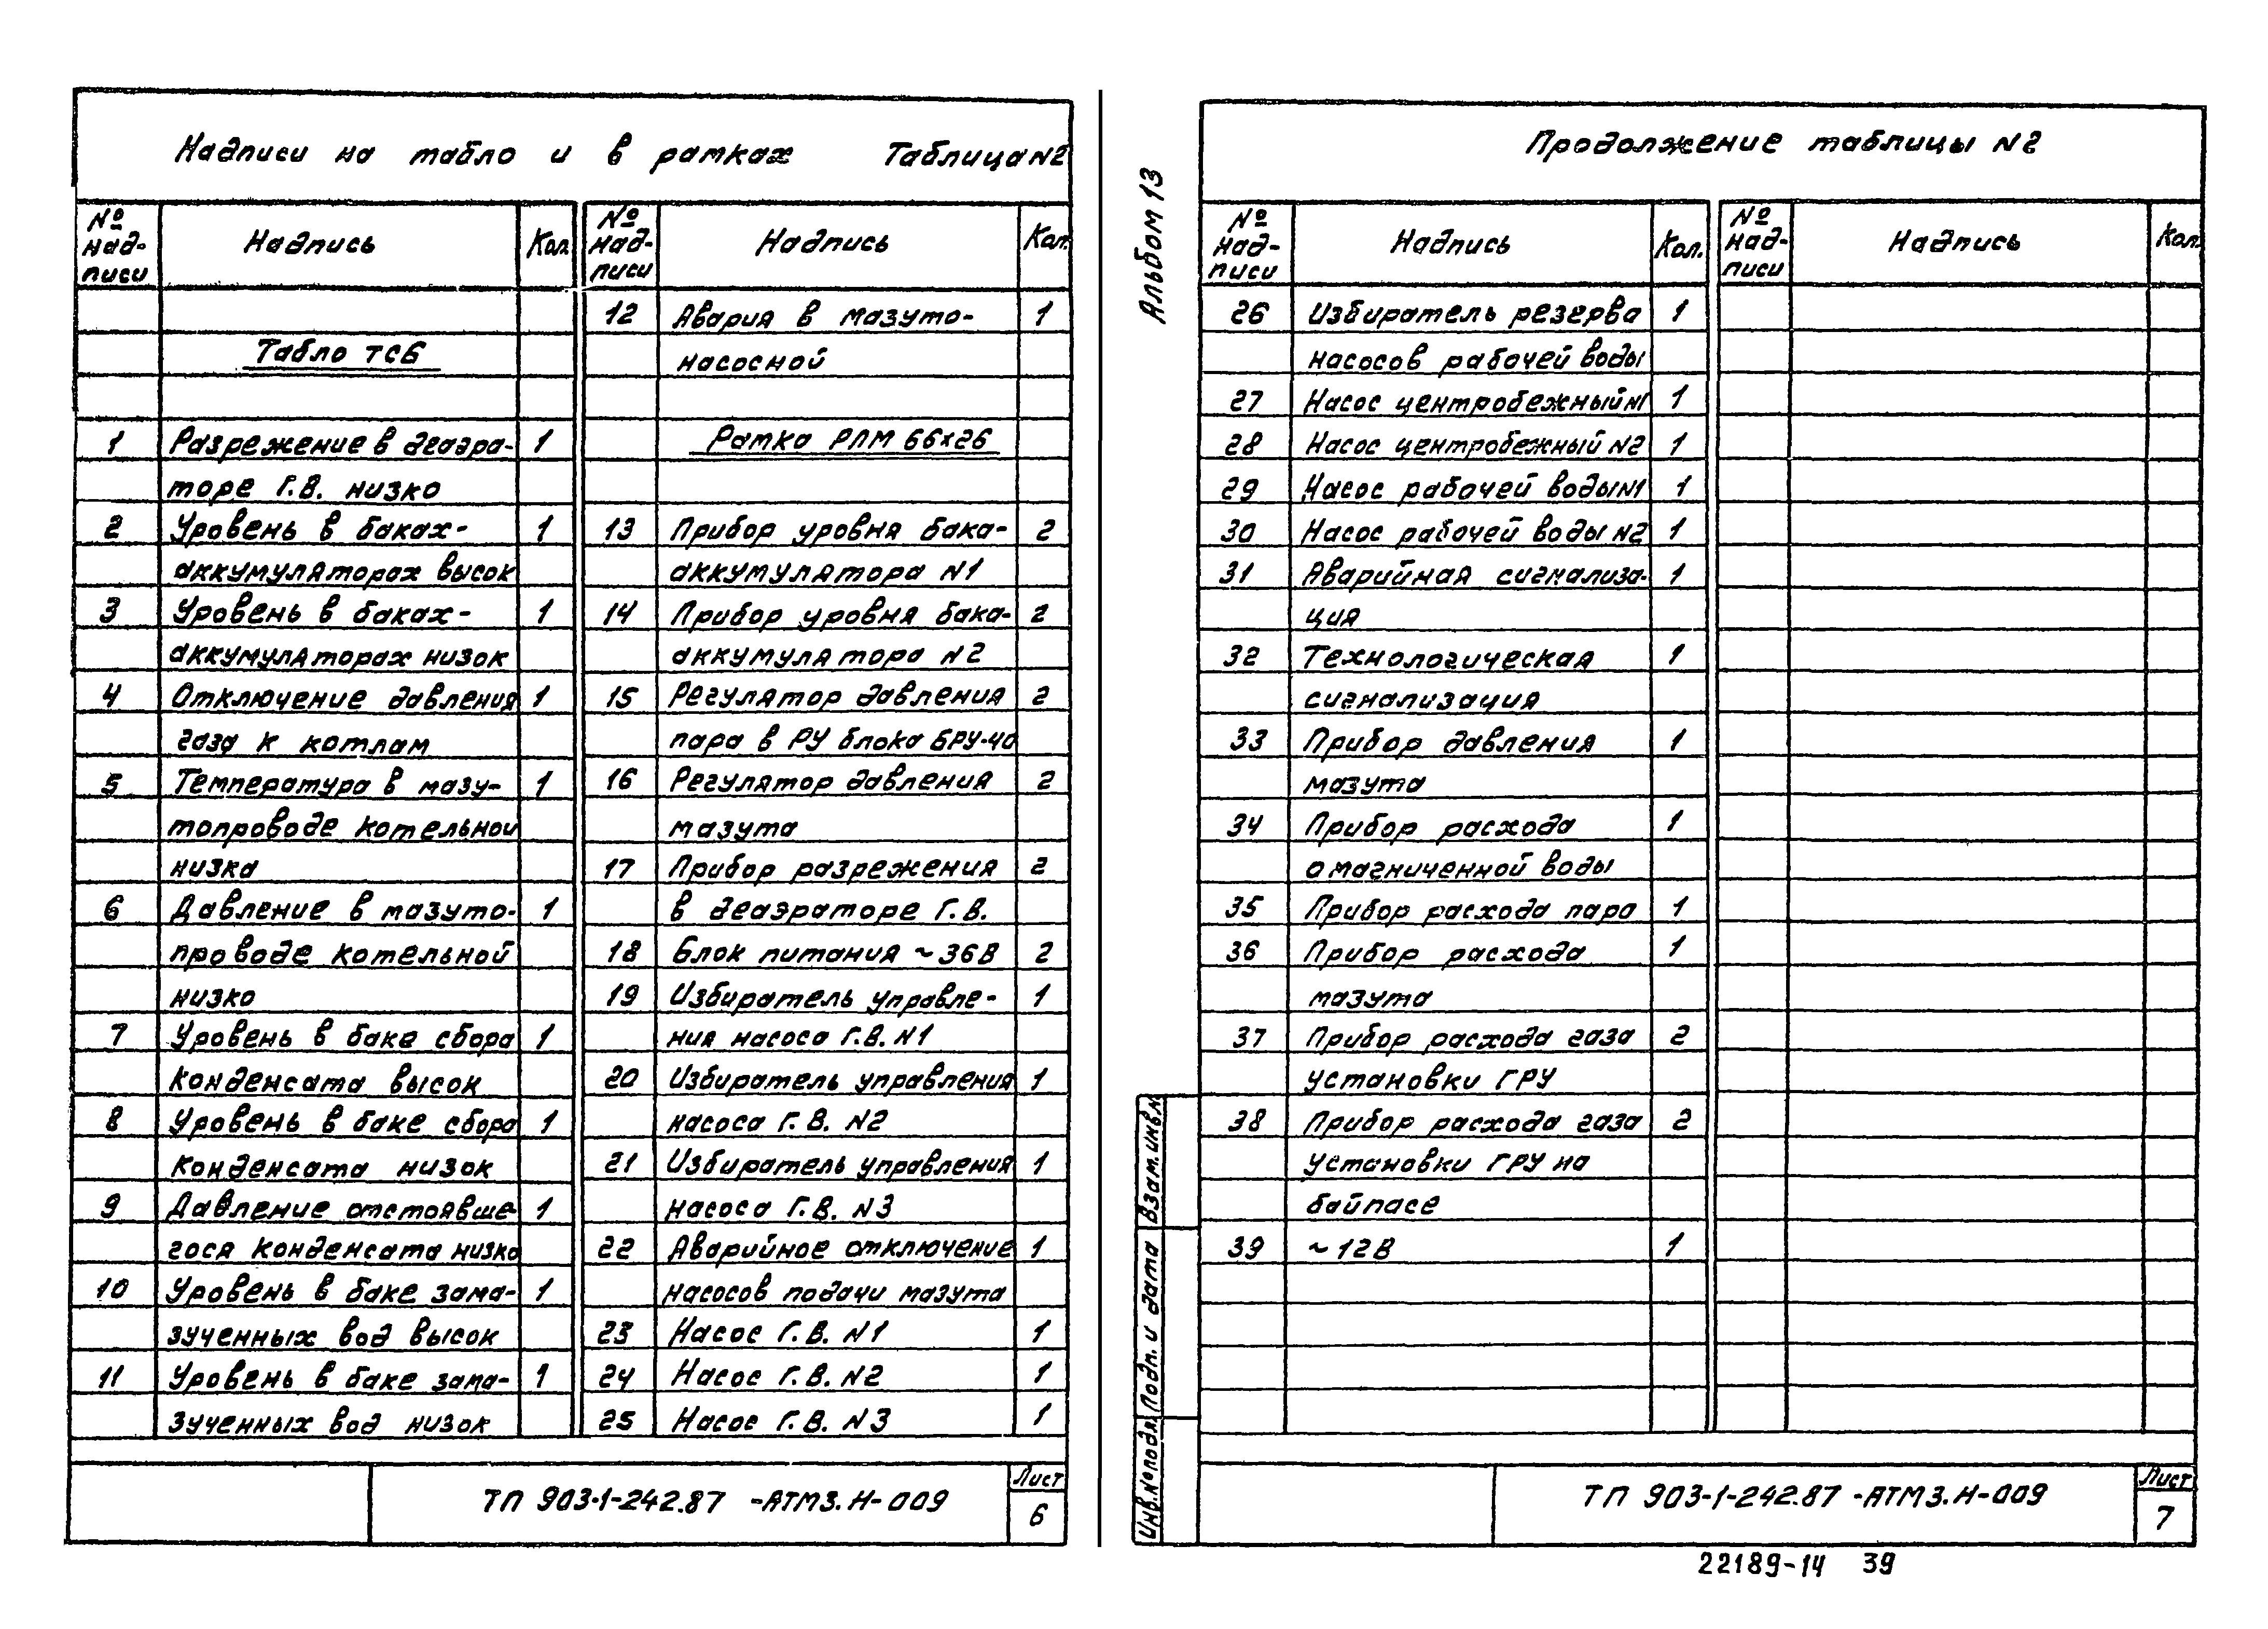 Надписи на табло и в рамках Таблица N2
№ над-писи Надпись Кол.
Табло ТСБ
1 Разрежение в деаэра- 1
торе Г.В. низко
2 Уровень в баках- 1
аккумуляторах высок
3 Уровень в баках- 1
аккумуляторах низок
4 Отключение давления 1
газа к котлам
5 Температура в мазу- 1
топроводе котельной
низка
6 Давление в мазуто- 1
проводе котельной
низко
7 Уровень в баке сбора 1
конденсата высок
8 Уровень в баке сбора 1
конденсата низок
9 Давление отстоявше- 1
гося конденсата низко
10 Уровень в баке зама- 1
зученных вод высок
11 Уровень в баке зама- 1
зученных вод низок
№ над-писи Надпись Кол.
12 Авария в мазуто- 1
насосной
Рамка РПМ 66×26
13 Прибор уровня бака- 2
аккумулятора N1
14 Прибор уровня бака- 2
аккумулятора N2
15 Регулятор давления 2
пара в РУ блока БРУ-40
16 Регулятор давления 2
мазута
17 Прибор разрежения 2
в деаэраторе Г.В.
18 Блок питания ~36В 2
19 Избиратель управле- 1
ния насоса Г.В. N1
20 Избиратель управления 1
насоса Г.В. N2
21 Избиратель управления 1
насоса Г.В. N3
22 Аварийное отключение 1
насосов подачи мазута
23 Насос Г.В. N1 1
24 Насос Г.В. N2 1
25 Насос Г.В. N3 1
ТП 903-1-242.87 -АТМ3.Н-009
Лист
6
Альбом 13
Продолжение таблицы N2
№ над-писи Надпись Кол.
26 Избиратель резерва 1
насосов рабочей воды
27 Насос центробежный N1 1
28 Насос центробежный N2 1
29 Насос рабочей воды N1 1
30 Насос рабочей воды N2 1
31 Аварийная сигнализа- 1
ция
32 Технологическая 1
сигнализация
33 Прибор давления 1
мазута
34 Прибор расхода 1
омагниченной воды
35 Прибор расхода пара 1
36 Прибор расхода 1
мазута
37 Прибор расхода газа 2
установки ГРУ
38 Прибор расхода газа 2
установки ГРУ на
байпасе
39 ~12В 1
№ над-писи Надпись Кол.
Взам.инв.N
Подп. и дата
Инв.Nподл.
ТП 903-1-242.87 -АТМ3.Н-009
Лист
7
22189-14 39